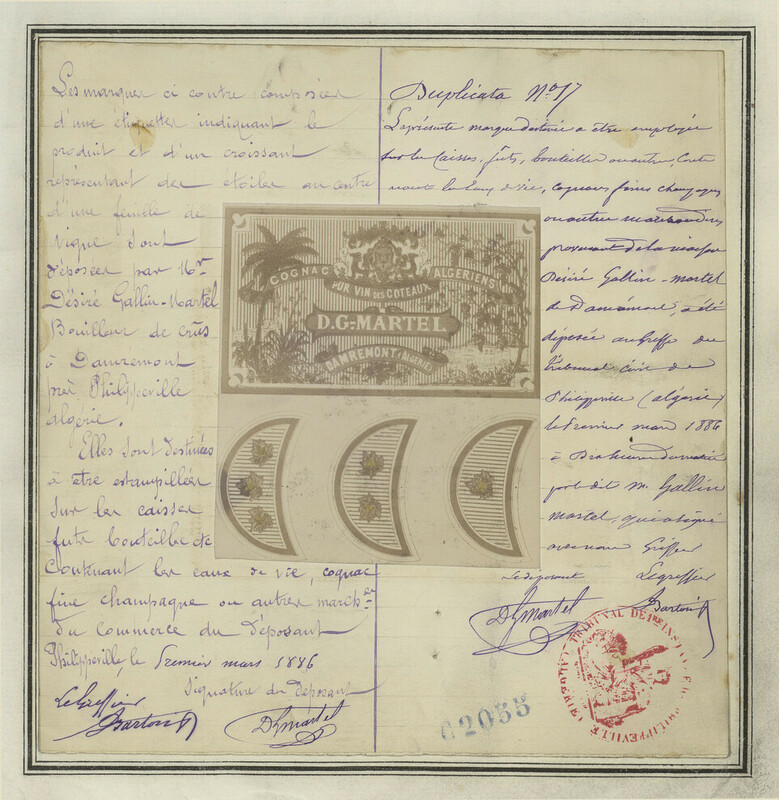 Les marques ci contre composées
d'une étiquette indiquant le
produit et d'un croissant
représentant des étoiles au centre
d'une feuille de
vigne sont
déposées par Mr
Désiré Gallin-Martel
Bouilleur de crûs
à Damremont
près Philippeville
algérie.
Elles sont destinées
à être estampillées
sur les caisses
futs bouteilles etc
Contenant les eaux de vie, cognac
fine champagne ou autres march
du commerce du déposant
Philippeville, le Premier mars 1886
Signature du déposant
Le Greffier
DGmartel
COGNAC PUR VIN DES COTEAUX ALGERIENS
D.G-MARTEL
DAMREMONT (ALGERIE)
Duplicata No 17
La présente marque destinée a être employée
sur les Caisses, futs, bouteilles ou autres, conte
nant les Eaux de vie, cognacs fines champagnes
ou autres marchandises
provenant de la maison
Désiré Gallin-martel
de Damrémont, a été
déposée au Greffe du
Tribunal civil de
Philippeville (algérie)
le Premier mars 1886
à
par le dit M. Gallin
martel, qui a signé
avec nous Greffier
Le déposant Le greffier
DGmartel
TRIBUNAL DE 1re INSTANCE PHILIPPEVILLE
62055